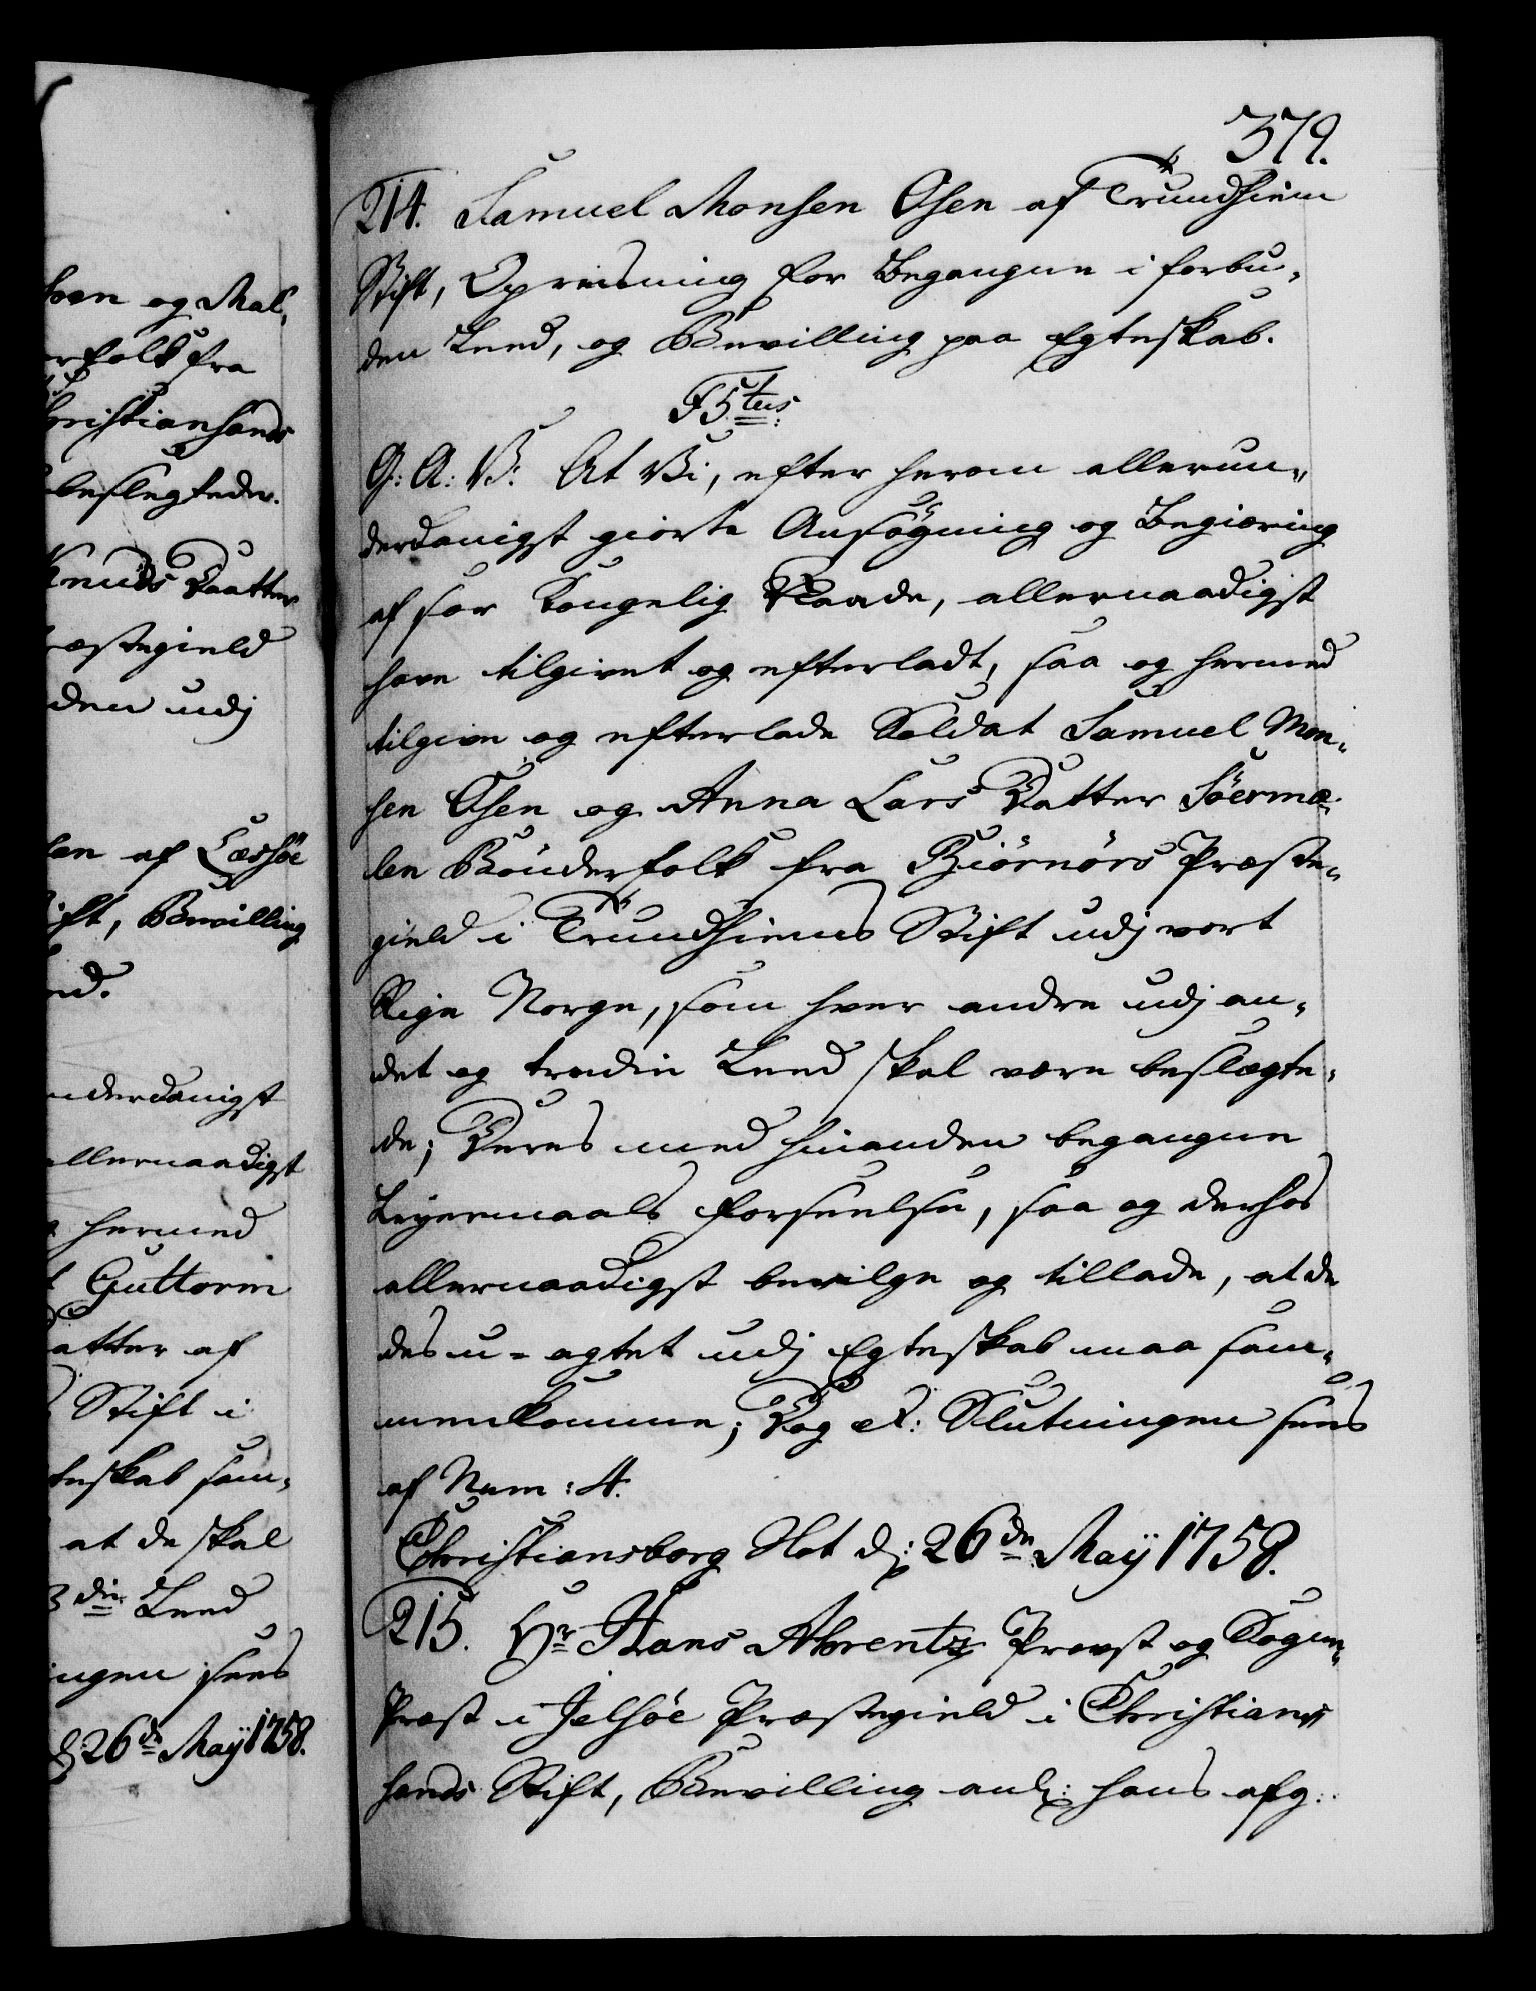 379.
214. Samuel Monsen Osen af Trundhiem
Stift, Opreisning for Begangne i forbu„
den Leed, og Bevilling paa Egteskab.
F5tus
G: A: V: At Vi, efter herom allerun„
derdanigst giorte Ansøgning og Begiæring
af sær Kongelig Naade, allernaadigst
have tilgivet og efterladt, saa og hermed
tilgive og efterlade Soldat Samuel Mon„
sen Osen og Anna Lars Datter Söermæ„
len Bönderfolk fra Biörnörs Præste„
gield i Trundhiems Stift udj vort
Rige Norge, som hver andre udj an„
det og tredie Leed skal være beslægte„
de; Deres med hinanden begangne
Leyermaals Forseelse, saa og derhos
allernaadigst bevilge og tillade, at de
des u-agtet udj Egteskab maa sam„
menkomme; Dog etc: Slutningen sees
af Num: 4.
Christiansborg Slot d: 26de May 1758.
215. Hr Hans Ahrentz Provst og Sogne„
Præst i Jelsöe Præstegield i Christian„
sands Stift, Bevilling anl: hans afg:
sen og Mal„
erfolk fra
Christiansands
beslegtede.
Knuds Daatter
ræstegield
den udj
len af Læssöe
ift, Bevilling
ed.
nderdanigst
allernaadigst
hermed
Guttorm
atter af
Stift i
teskab sam„
at de skal
3die Leed
ingen sees
d: 26de May 1758.